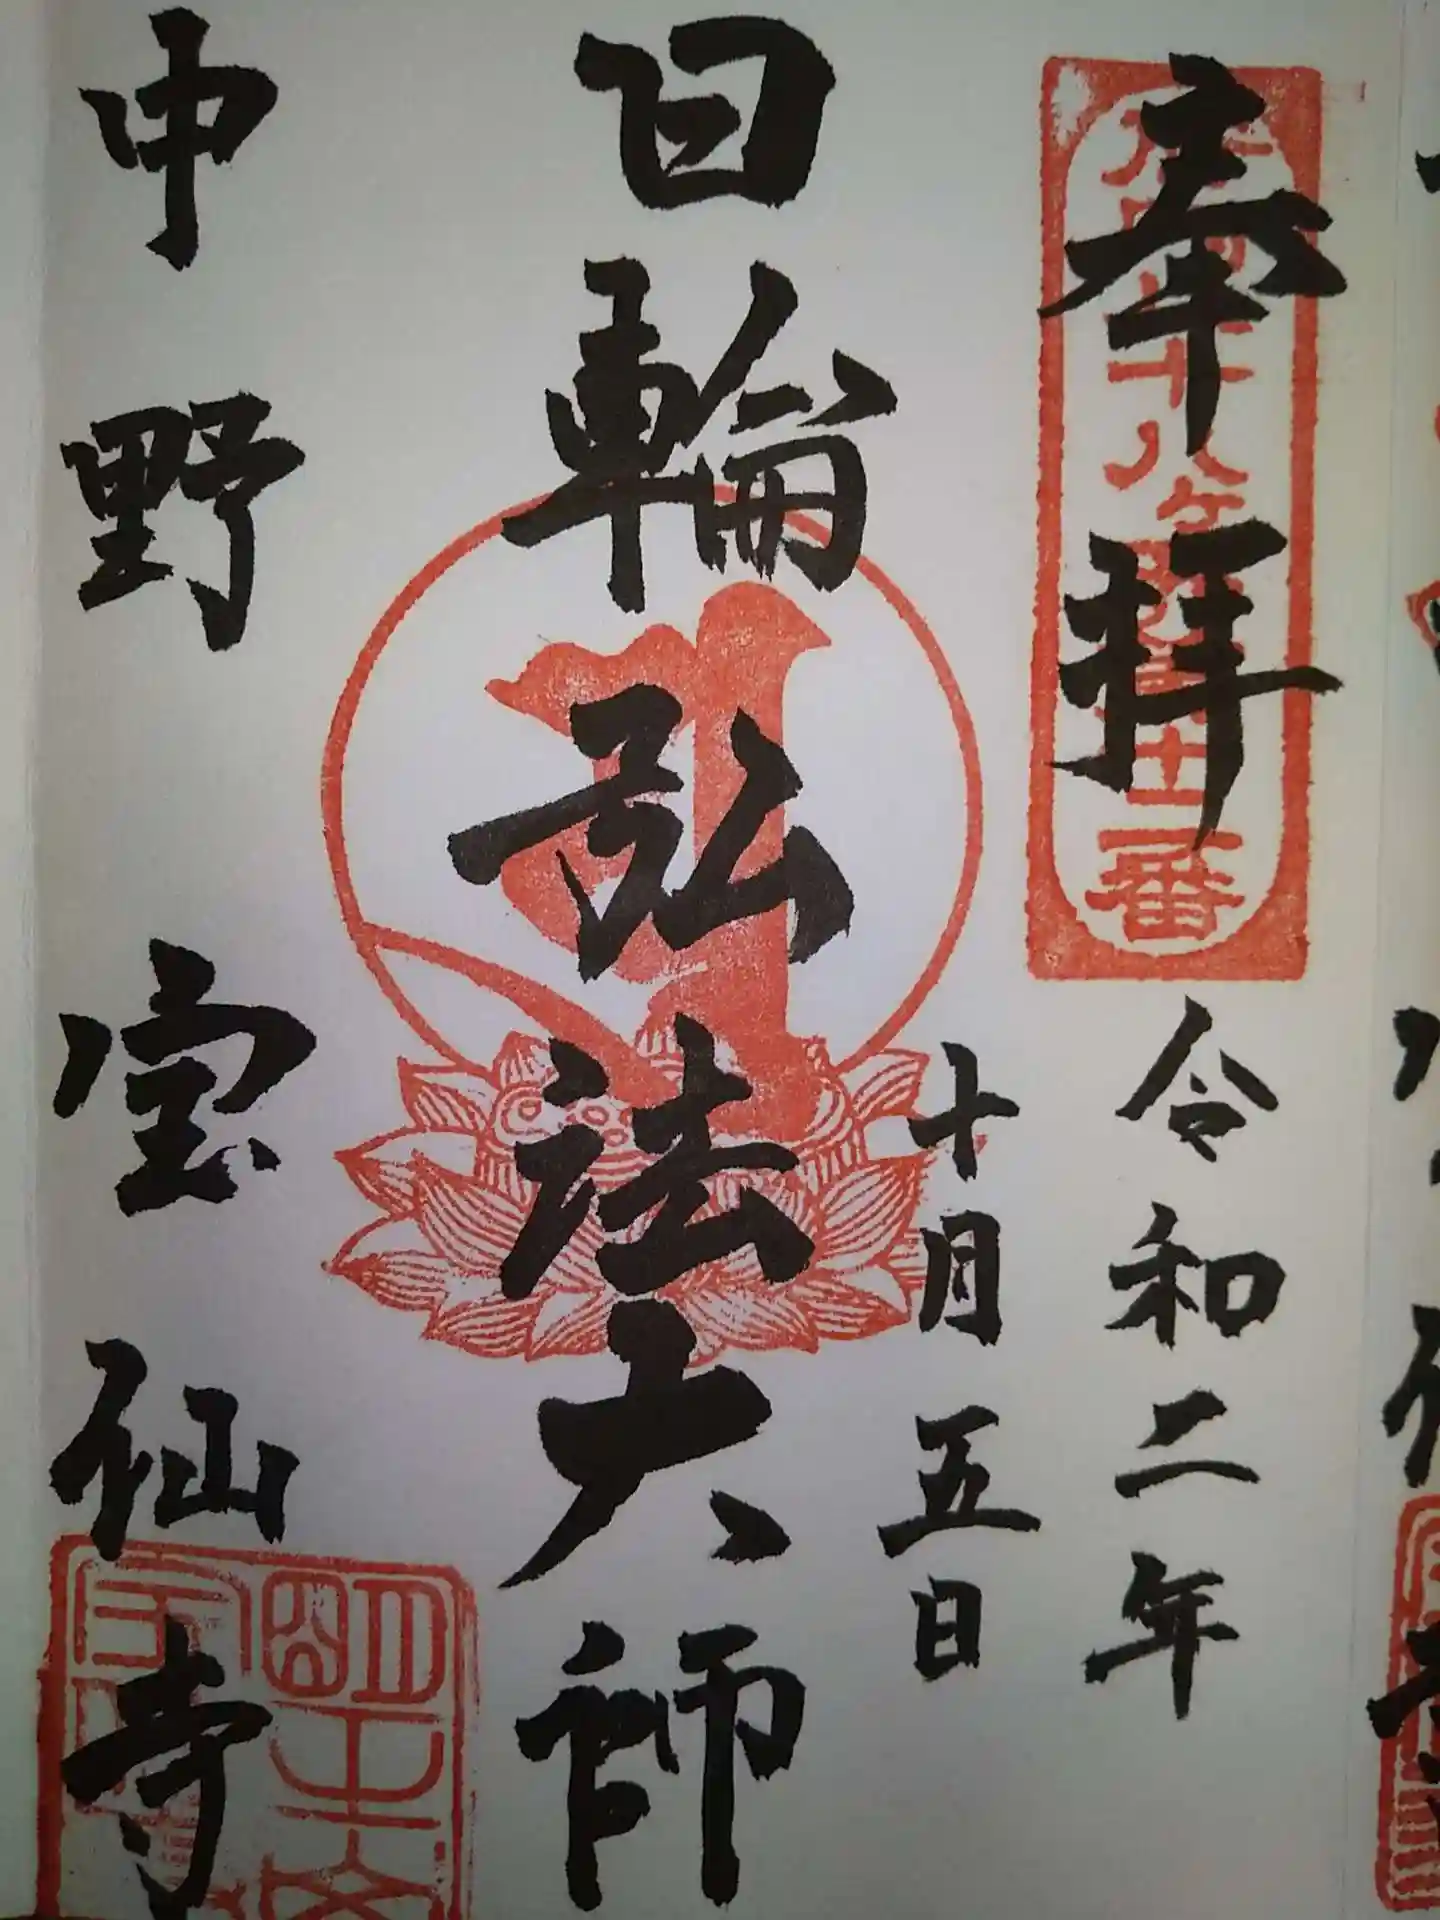 奉拝
十八ヶ
番
令和二年
十月五日
日輪弘法大師
中野
宝仙寺